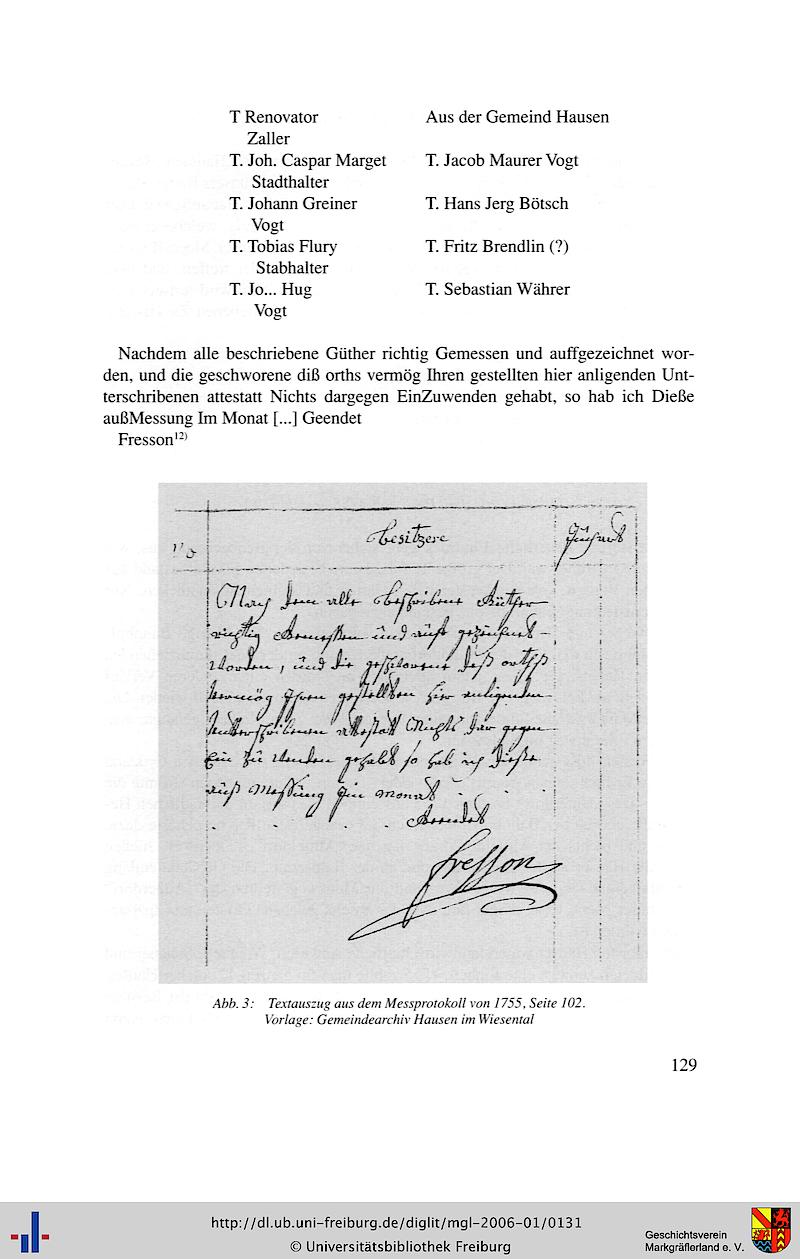 T Renovator Aus der Gemeind Hausen
Zaller
T. Joh. Caspar Marget T. Jacob Maurer Vogt
Stadthalter
T. Johann Greiner T. Hans Jerg Bötsch
Vogt
T. Tobias Flury T. Fritz Brendlin (?)
Stabhalter
T. Jo... Hug T. Sebastian Währer
Vogt
Nachdem alle beschriebene Güther richtig Gemessen und auffgezeichnet wor-
den, und die geschworene diß orths vermög Ihren gestellten hier anligenden Unt-
terschribenen attestatt Nichts dargegen EinZuwenden gehabt, so hab ich Dieße
außMessung Im Monat [...] Geendet
Fresson¹²⁾
No Besitzere Juchart
Nach dem alle Beschribene Güther
richtig Gemessen und auff gezeichnet
Worden, und die geschworene diß orths
vermög Ihren gestellten hier anligenden
Untterschribenen attestatt Nichts dar gegen
Ein zu Wenden gehabt so hab ich Dieße
auß Messung Im Monat
Geendet
Fresson
Abb. 3: Textauszug aus dem Messprotokoll von 1755, Seite 102.
Vorlage: Gemeindearchiv Hausen im Wiesental
129
http://dl.ub.uni-freiburg.de/diglit/mgl-2006-01/0131
© Universitätsbibliothek Freiburg
Geschichtsverein
Markgräflerland e. V.